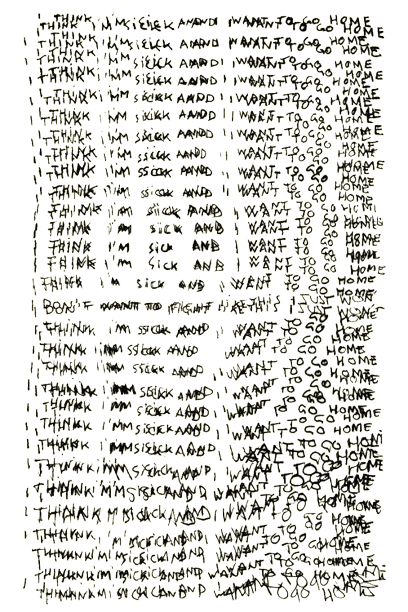 I THINK I'M SICK AND I WANT TO GO HOME
I THINK I'M SICK AND I WANT TO GO HOME
I THINK I'M SICK AND I WANT TO GO HOME
I THINK I'M SICK AND I WANT TO GO HOME
I THINK I'M SICK AND I WANT TO GO HOME
I THINK I'M SICK AND I WANT TO GO HOME
I THINK I'M SICK AND I WANT TO GO HOME
I THINK I'M SICK AND I WANT TO GO HOME
I THINK I'M SICK AND I WANT TO GO HOME
I THINK I'M SICK AND I WANT TO GO HOME
I THINK I'M SICK AND I WANT TO GO HOME
I THINK I'M SICK AND I WANT TO GO HOME
I THINK I'M SICK AND I WANT TO GO HOME
I THINK I'M SICK AND I WANT TO GO HOME
DON'T WANT TO FIGHT THIS I JUST
I THINK I'M SICK AND I WANT TO GO HOME
I THINK I'M SICK AND I WANT TO GO HOME
I THINK I'M SICK AND I WANT TO GO HOME
I THINK I'M SICK AND I WANT TO GO HOME
I THINK I'M SICK AND I WANT TO GO HOME
I THINK I'M SICK AND I WANT TO GO HOME
I THINK I'M SICK AND I WANT TO GO HOME
I THINK I'M SICK AND I WANT TO GO HOME
I THINK I'M SICK AND I WANT TO GO HOME
I THINK I'M SICK AND I WANT TO GO HOME
I THINK I'M SICK AND I WANT TO GO HOME
I THINK I'M SICK AND I WANT TO GO HOME